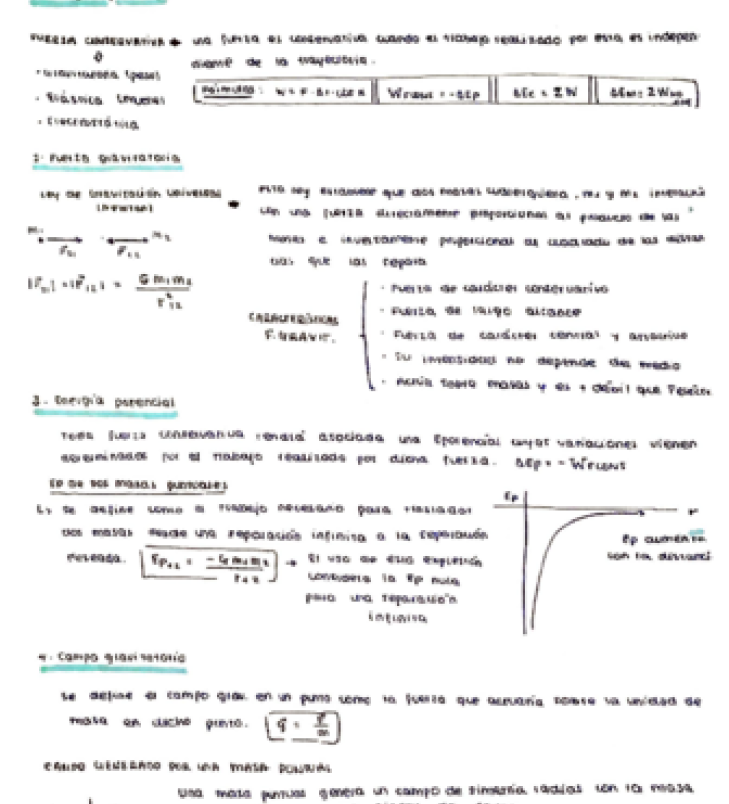 FUERZA CONSERVATIVA → una fuerza es conservativa cuando el trabajo realizado por esta, es indepen
diente de la trayectoria.
· Gravitatoria (peso)
· Elástica (muelles)
· Electrostática
Fórmulas:
2. Fuerza gravitatoria
Ley de Gravitación Universal
(Newton)
esta ley establece que dos masas cualesquiera, m₁ y m₂ interacú
an una fuerza directamente proporcional al producto de las
masas e inversamente proporcional al cuadrado de las distan
cias que las separa
m₁ F₂₁ F₁₂ m₂
|F₂₁| = |F₁₂| = G m₁ m₂ / r²₁₂
CARACTERÍSTICAS
F. GRAVIT.
· Fuerza de carácter conservativo
· Fuerza de largo alcance
· Fuerza de carácter central y atractivo
· Su intensidad no depende del medio
· Actúa sobre masas y es + débil que
3. Energía potencial
Toda fuerza conservativa tendrá asociada una Epotencial cuyas variaciones vienen
determinadas por el trabajo realizado por dicha fuerza. ΔEp = - W
Ep de dos masas puntuales
Es se define como el trabajo necesario para trasladar
dos masas desde una separación infinita a la separación
deseada. Ep₁₂ = -G m₁ m₂ / r₁₂ → El uso de esta expresión
considera la Ep nula
para una separación
infinita
Ep
r
Ep aumenta
con la distanci
4. Campo gravitatorio
Se define el campo grav. en un punto como la fuerza que actuaría sobre la unidad de
masa en dicho punto. g = F / m
CAMPO GENERADO POR UNA MASA PUNTUAL
Una masa puntual genera un campo de simetría radial con la masa